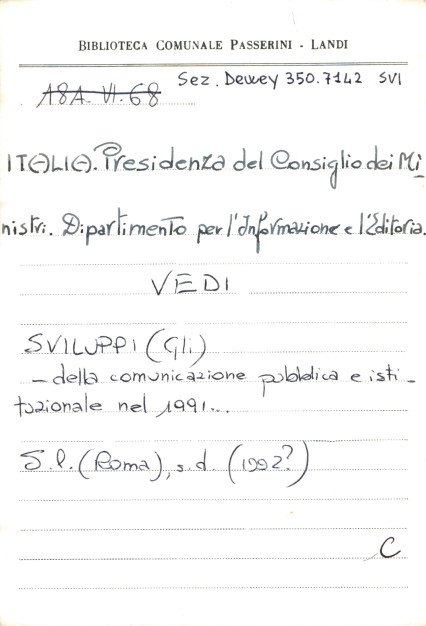 BIBLIOTECA COMUNALE PASSERINI - LANDI
A8A. VI. 68 Sez. Dewey 350.7142 SVI
ITALIA. Presidenza del Consiglio dei Mi
nistri. Dipartimento per l'Informazione e l'Editoria.
VEDI
SVILUPPI (Gli)
- della comunicazione pubblica e isti-
tuzionale nel 1991...
S.l. (Roma), s.d. (1992?)
C